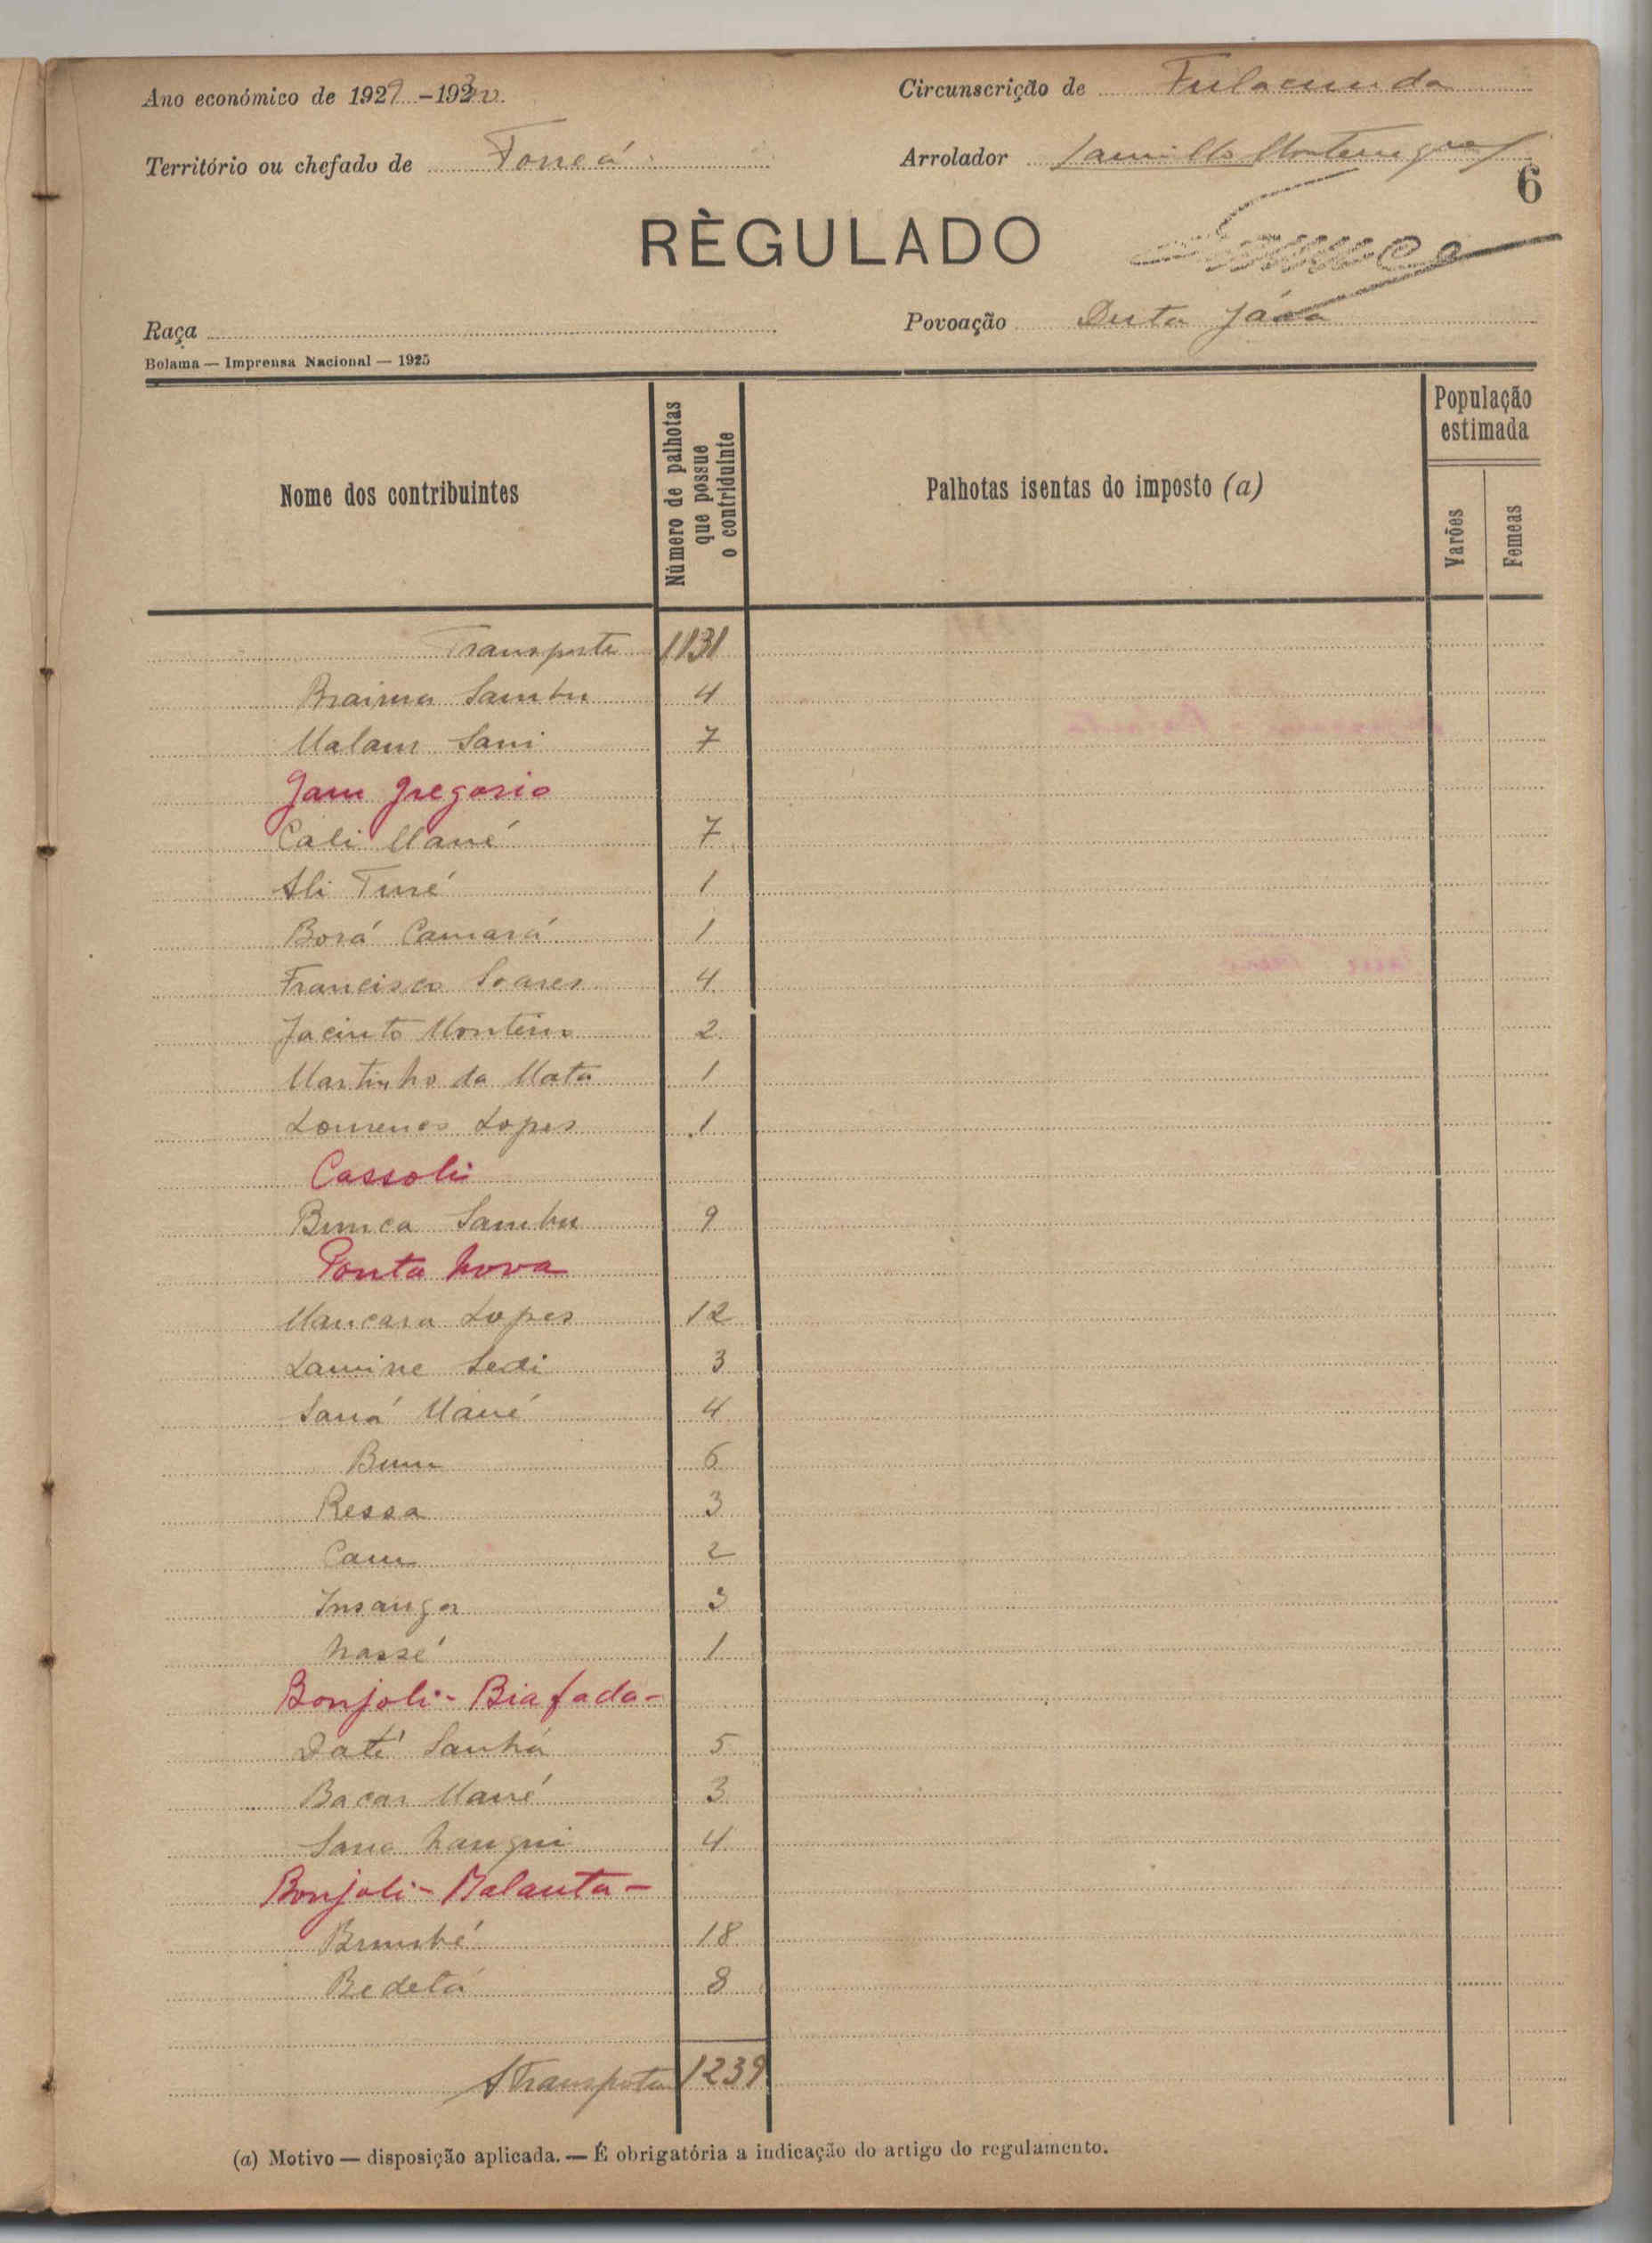 Ano económico de 1929-1930
Circunscrição de Fulacunda
Território ou chefado de Foneá
Arrolador Camillo Montenegro
6
RÈGULADO
Raça
Povoação Duta Jára
Bolama — Imprensa Nacional — 1925
Nome dos contribuintes
Número de palhotas
que possue
o contriduinte
Palhotas isentas do imposto (a)
População
estimada
Varões
Femeas
Transporte 1131
Braima Sambu 4
Malam Sani 7
Jam Gregorio
Cali Mané 7
Ali Turé 1
Borá Camará 1
Francisco Soares 4
Jacinto Monteiro 2
Martinho da Mata 1
Lourenço Lopes 1
Cassoli
Bunca Sambu 9
Ponta Nova
Mancara Lopes 12
Lamine Sedi 3
Saná Mané 4
Bum 6
Ressa 3
Cam 2
Insanga 3
Nassé 1
Bonjoli - Biafada -
Daté Sanhá 5
Bacar Mané 3
Sana Nangui 4
Bonjoli - Balanta -
Brumbé 18
Bedetá 8
A Transportar 1239
(a) Motivo — disposição aplicada. — É obrigatória a indicação do artigo do regulamento.